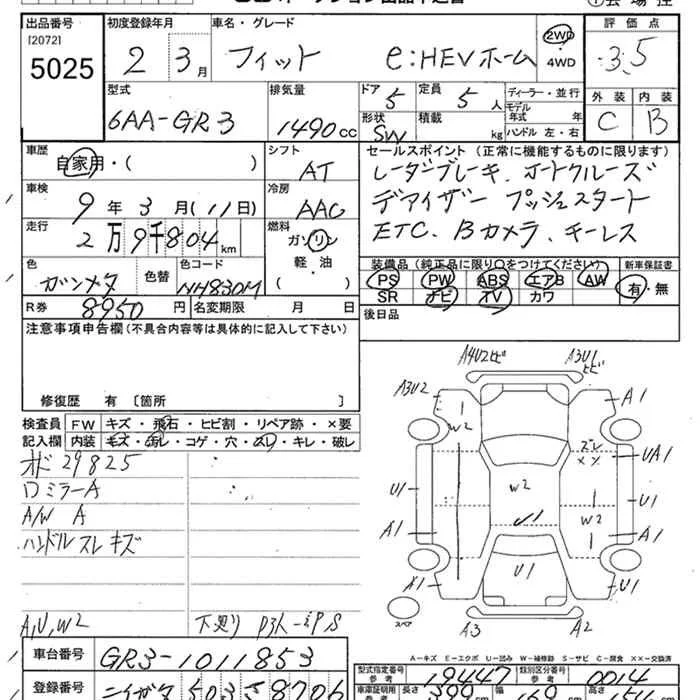 出品番号 初度登録年月 車名・グレード 評価点
[2072]
5025 2 3月 フィット e:HEVホーム 2WD・4WD 3.5
型式 排気量 ドア 定員 ディーラー・並行 外装 内装
6AA-GR3 1490cc 5 5人 モデル年式 年 C B
形状 SW 積載 kg ハンドル 左・右
車歴 シフト セールスポイント(正常に機能するものに限ります)
自家用・( ) AT レーダーブレーキ、オートクルーズ
車検 冷房 デアイザー プッシュスタート
9年3月(11日) AAC ETC、Bカメラ、キーレス
走行 燃料
2万9千804km ガソリン
軽・油
( )
色 色替 色コード 装備品(純正品に限り○をつけてください) 新車保証書
ガンメタ NH830M PS PW ABS エアB AW 有・無
SR ナビ TV カワ
R券 8950円 名変期限 月 日 後日品
注意事項申告欄(不具合内容等は具体的に記入して下さい)
修復歴 有 〔箇所 〕
検査員 FW キズ・飛石・ヒビ割・リペア跡・×要
記入欄 内装 キズ・汚レ・コゲ・穴・スレ・キレ・破レ
オド 29825
ロミラーA
A/W A
ハンドルスレキズ
A,U,W2
A4U2ヒビ A3U1ヒビ
A3U2 A1
W2
UA1
U1 W2 U1
W2
A1 A1
U1
A1 U1
スペア
A3 A2
A－キズ E－エクボ U－凹み W－補修跡 S－サビ C－腐食 ××－交換済
車台番号 GR3-1011853
型式指定番号 参考 19447 類別区分番号 参考 0014
登録番号 503 さ 8706
長さ 399 cm 高さ